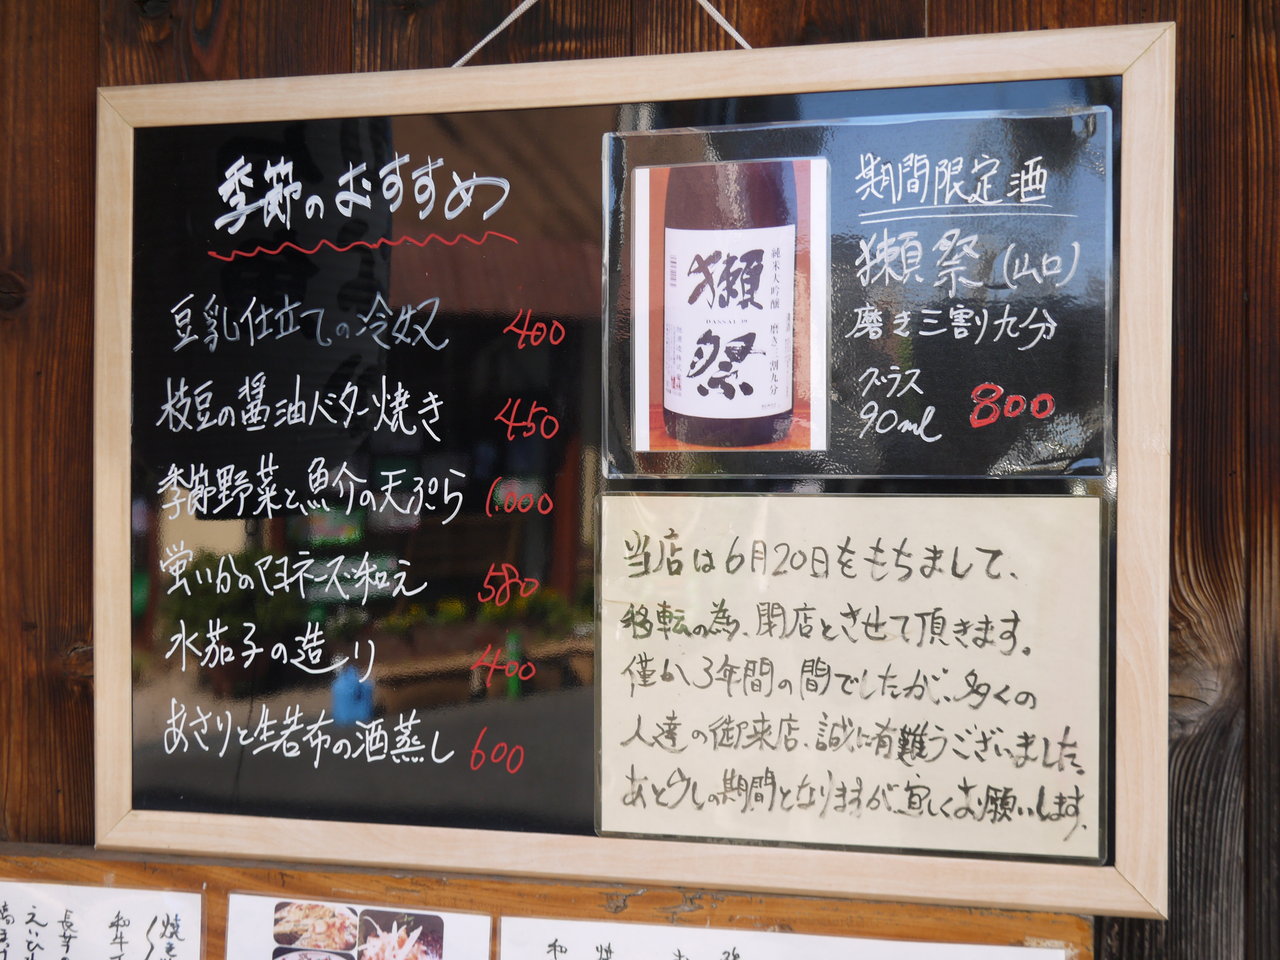 季節のおすすめ
豆乳仕立ての冷奴 400
枝豆の醤油バター焼き 450
季節野菜と魚介の天ぷら 1.000
蛍いかのマヨネーズ和え 580
水茄子の造り 400
あさりと生若布の酒蒸し 600
期間限定酒
獺祭(山口)
磨き三割九分
グラス
90ml 800
純米大吟醸 磨き三割九分
獺祭
DASSAI 39
当店は6月20日をもちまして、
移転の為、閉店とさせて頂きます。
僅か3年間の間でしたが、多くの
人達の御来店、誠に有難うございました。
あと少しの期間となりますが、宜しくお願いします。